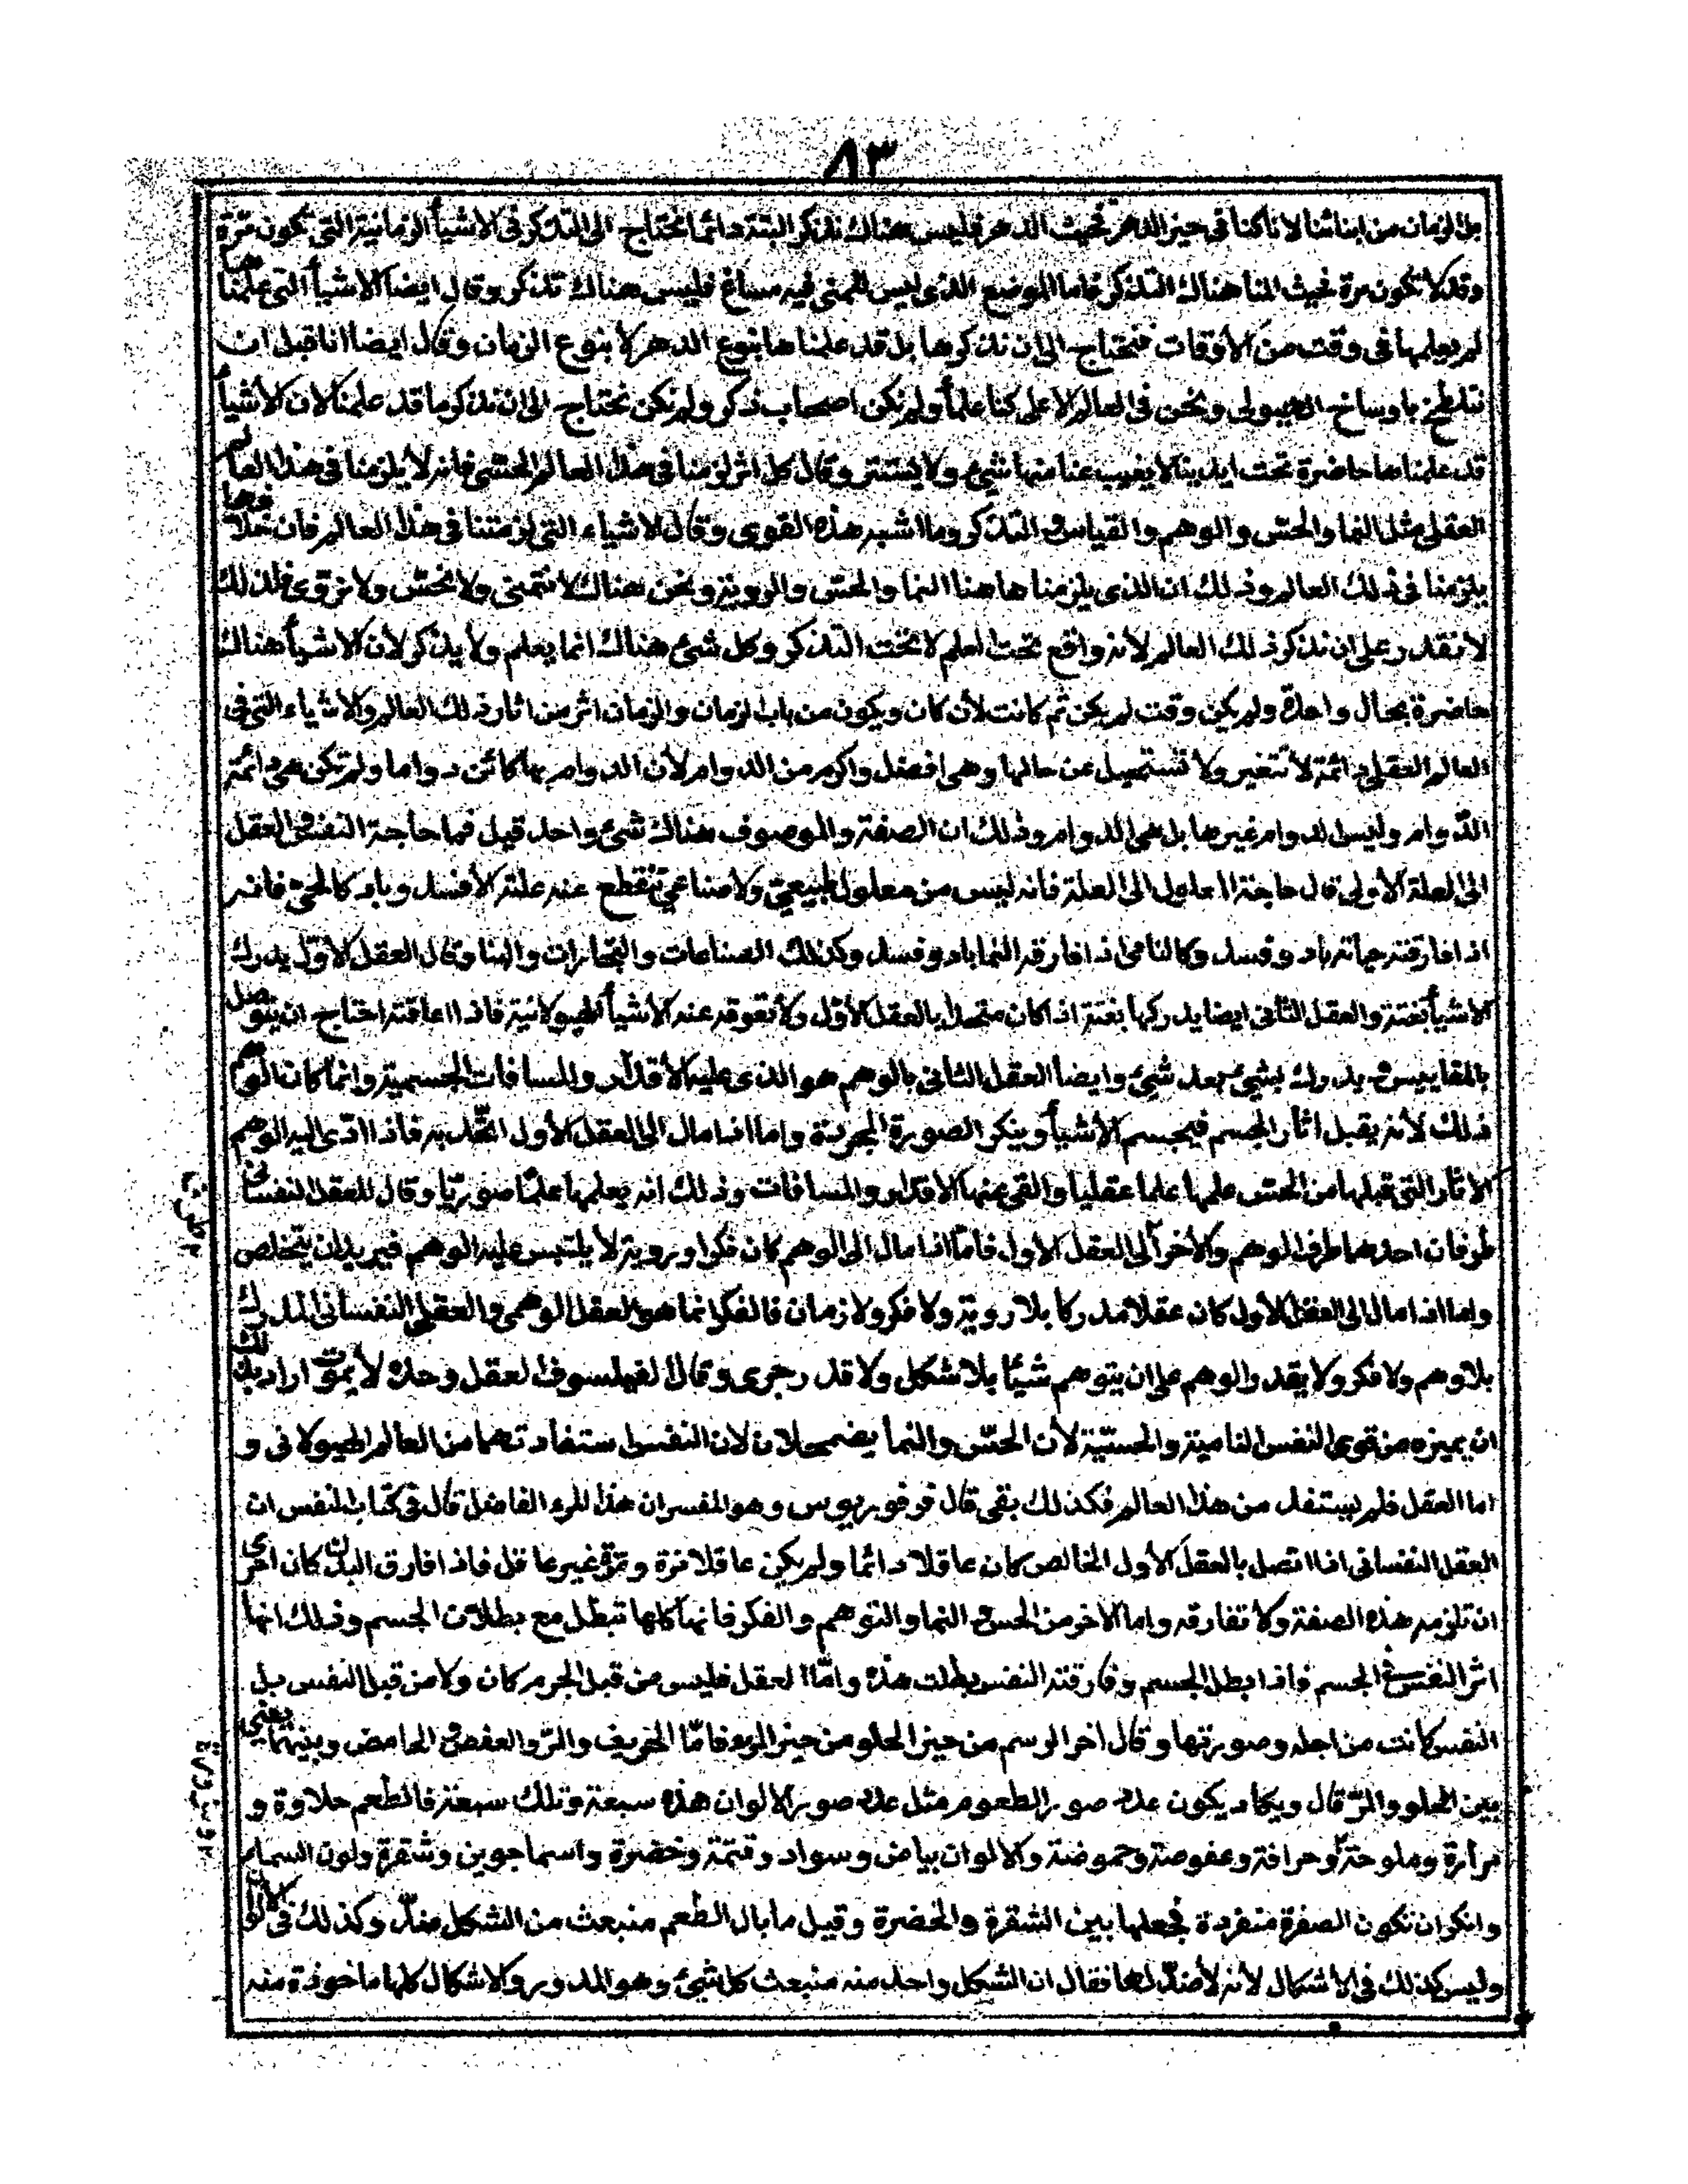 ٨٣
بل الزمان من ابنائنا لانا كنا فى حيز الدهر فحيث الدهر فليس هناك تذكر البتة دائما نحتاج الى التذكر فى الاشيأ الزمانية التى تكون مرة
وقد لا تكون مرة فحيث المنا هناك التذكر فاما الموضع الذى ليس للمنى فيه مساغ فليس هناك تذكر وقال ايضا الاشيأ التى علمناها
لم نعلمها فى وقت من الأوقات فنحتاج الى ان نذكرها بل قد علمناها بنوع الدهر لا بنوع الزمان وقال ايضا انا قبل ان
نتلطخ باوساخ الهيولى ونحن فى العالم الاعلى كنا علمأ ولم نكن اصحاب ذكر ولم نكن نحتاج الى ان نذكر ما قد علمنا لان الأشيأ
قد علمناها حاضرة تحت ايدينا لا يغيب عنا منها شئ ولا يستتر وقال كل اثر لزمنا فى هذا العالم الحسّى فانه لا يلزمنا فى هذا العالم
العقلى مثل النما والحسّ والوهم والقياس والتذكر وما اشبه هذه القوى وقال الاشياء التى لزمتنا فى هذا العالم فان خلافها
يلزمنا فى ذلك العالم وذلك ان الذى يلزمنا هاهنا النما والحسّ والروية ونحن هناك لا ننمى ولا نحسّ ولا نروّى فلذلك
لا نقدر على ان نذكر ذلك العالم لأنه واقع تحت العلم لا تحت التذكر وكل شئ هناك انما يعلم ولا يذكر لأن الاشيأ هناك
حاضرة بحال واحدة ولم يكن وقت لم يكن ثم كانت لأن كان ويكون من باب الزمان والزمان اثر من اثار ذلك العالم والاشياء التى فى
العالم العقلى دائمة لا تتغير ولا تستحيل عن حالها وهى افضل واكرم من الدوام لأن الدوام بها كائن دواما ولم تكن هى دائمة
الدّوام وليس الدوام غيرها بل هى الدوام وذلك ان الصفة والموصوف هناك شئ واحد قيل فما حاجة النفس والعقل
الى العلة الأولى قال حاجة المعلول الى العلة فانه ليس من معلول طبيعىّ ولا صناعىّ تنقطع عنه علته الا فسد وباد كالحىّ فانه
اذا فارقته حياته باد وفسد وكالنامى اذا فارقه النما باد وفسد وكذلك الصناعات والتجارات والبنا وقال العقل الأوّل يدرك
الأشيأ بغتة والعقل الثانى ايضا يدركها بغتة اذا كان متحدا بالعقل الأوّل ولا تعوقه عنه الأشيأ الهيولانية فاذا اعاقته احتاج ان يتوصل
بالمقاييس ويدرك بشئ بعد شئ وايضا العقل الثانى بالوهم هو الذى عليه الأقدار والمسافات الجسمية وانما كان الوهم
ذلك لأنه يقبل اثار الجسم فيجسم الأشيأ وينكر الصورة المجردة واما اذا مال الى العقل الأول اتحّد به فاذا ادّى اليه الوهم
الاثار التى قبلها من الحسّ علمها علما عقليا والقى عنها الأقدار والمسافات وذلك انه يعلمها علمًا صوريّا وقال للعقل النفسانى
طرفان احدهما طرف الوهم والأخر الى العقل الأول فامّا اذا مال الى الوهم كان فكرا وروية لا يلتبس عليه الوهم فيريد ان يتخلص
واما اذا مال الى العقل الأول كان عقلا مدركا بلا روية ولا فكر ولا زمان فالفكر انما هو العقل الوهمى والعقل النفسانى المدرك
بلا وهم ولا فكر ولا يقدر الوهم على ان يتوهم شيئا بلا شكل ولا قدر جرمى وقال الفيلسوف العقل وحده لا يموت اراد بذلك
ان يميزه من قوى النفس النامية والحسّية لأن الحسّ والنما يضمحلان لان النفس استفادتهما من العالم الهيولانى و
اما العقل فلم يستفد من هذا العالم فكذلك بقى قال فرفوريوس وهو المفسر ان هذا المرء الفاضل قال فى كتاب النفس ان
العقل النفسانى اذا اتصل بالعقل الأول الخالص كان عاقلا دائما ولم يكن عاقلا مرة ومرة غير عاقل فاذا فارق البدن كان احرى
ان تلزمه هذه الصفة ولا تفارقه واما الاخر من الحس والنما والتوهم والفكر فانها كلها تبطل مع بطلان الجسم وذلك انها
اثر النفس فى الجسم فاذا بطل الجسم وفارقته النفس بطلت هذه وامّا العقل فليس من قبل الجرم كان ولا من قبل النفس بل
النفس كانت من اجله وصورتها وقال اخر الرسم من حيز الحلو من حيز المرة فامّا الحريف والمرّ والعفص والحامض وبينهما يعنى
بين الحلو والمرّ قال ويكاد يكون عدد صور الطعوم مثل عدد صور الالوان هذه سبعة وتلك سبعة فالطعم حلاوة و
مرارة وملوحة وحرافة وعفوصة وحموضة والالوان بياض وسواد وقتمة وخضرة واسما جوين وشقرة ولون السماء
وانكر ان تكون الصفرة منفردة فجعلها بين الشقرة والخضرة وقيل ما بال الطعم منبعث من الشكل ضدّ وكذلك فى الالوان
وليس كذلك فى الأشكال لأنه لا ضدّ لها فقال ان الشكل واحد منه منبعث كل شئ وهو المدور والاشكال كلها ماخوذة منه